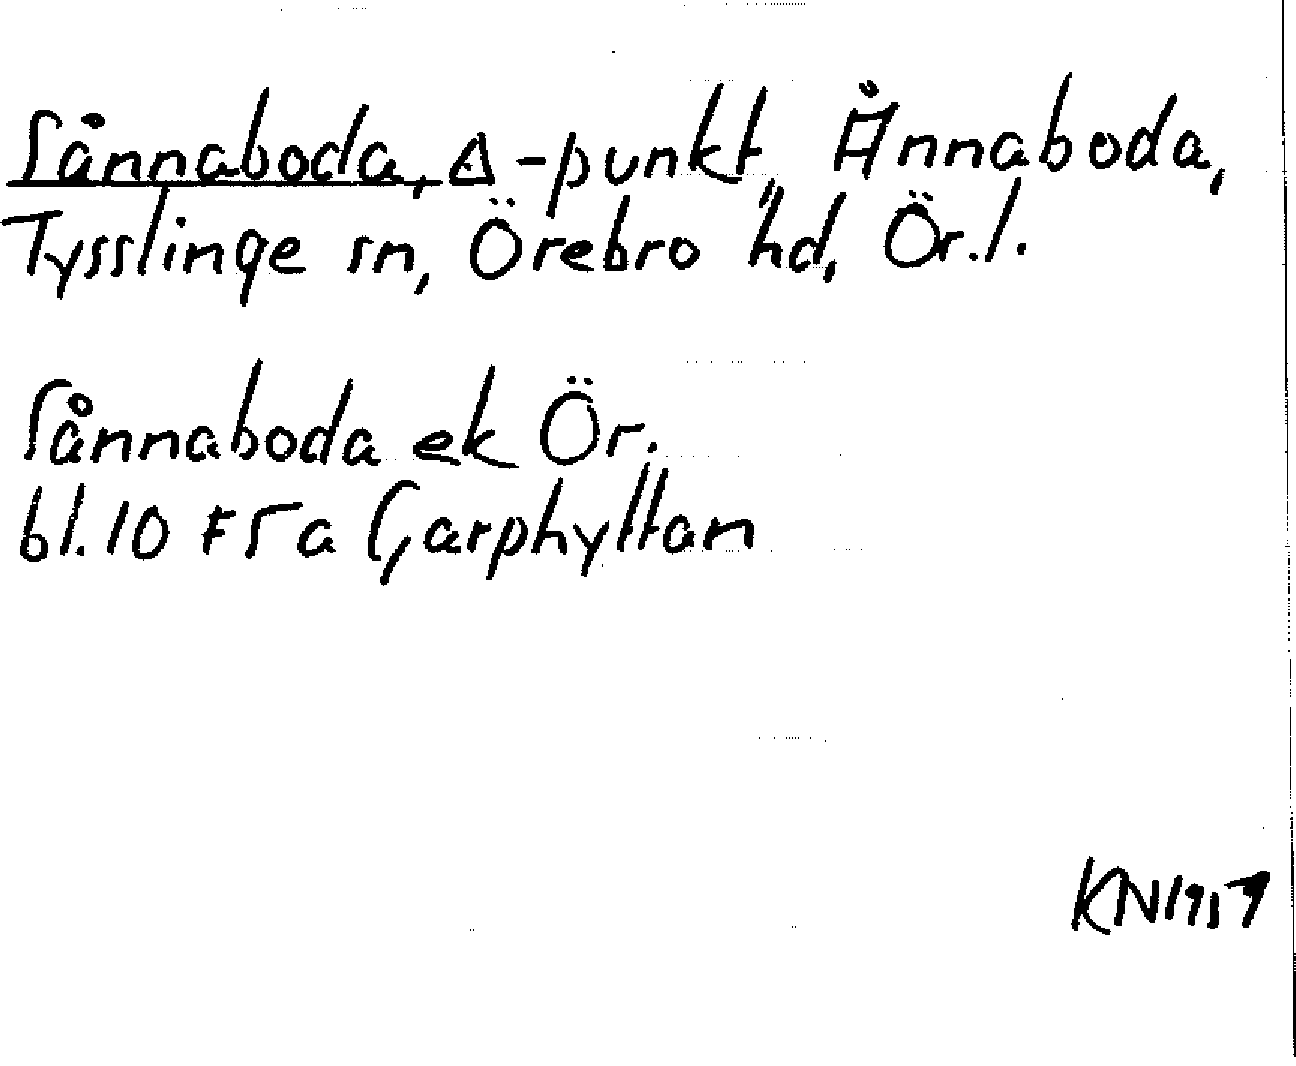 Sånnaboda, Δ-punkt, Ånnaboda,
Tysslinge sn, Örebro hd, Ör.l.
Sånnaboda ek Ör.
bl. 10 F5a Garphyttan